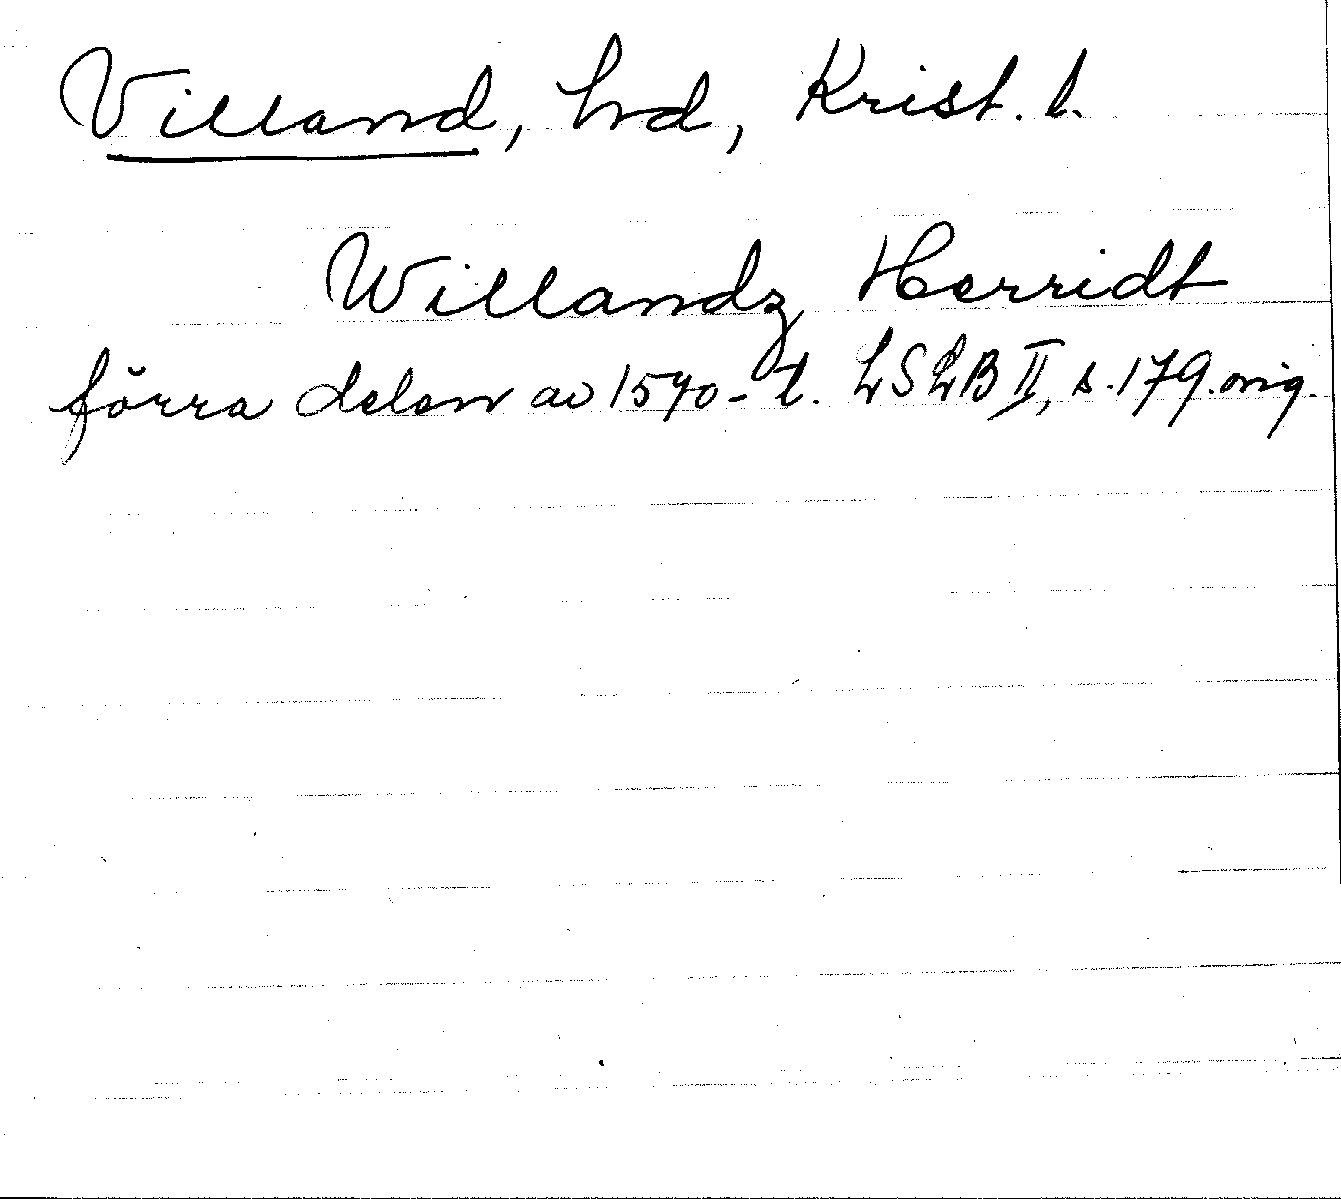 Villand, hd, Krist. l.
Willandz Herridt
förra delen av 1570-t. LSLB II, s. 179. orig.